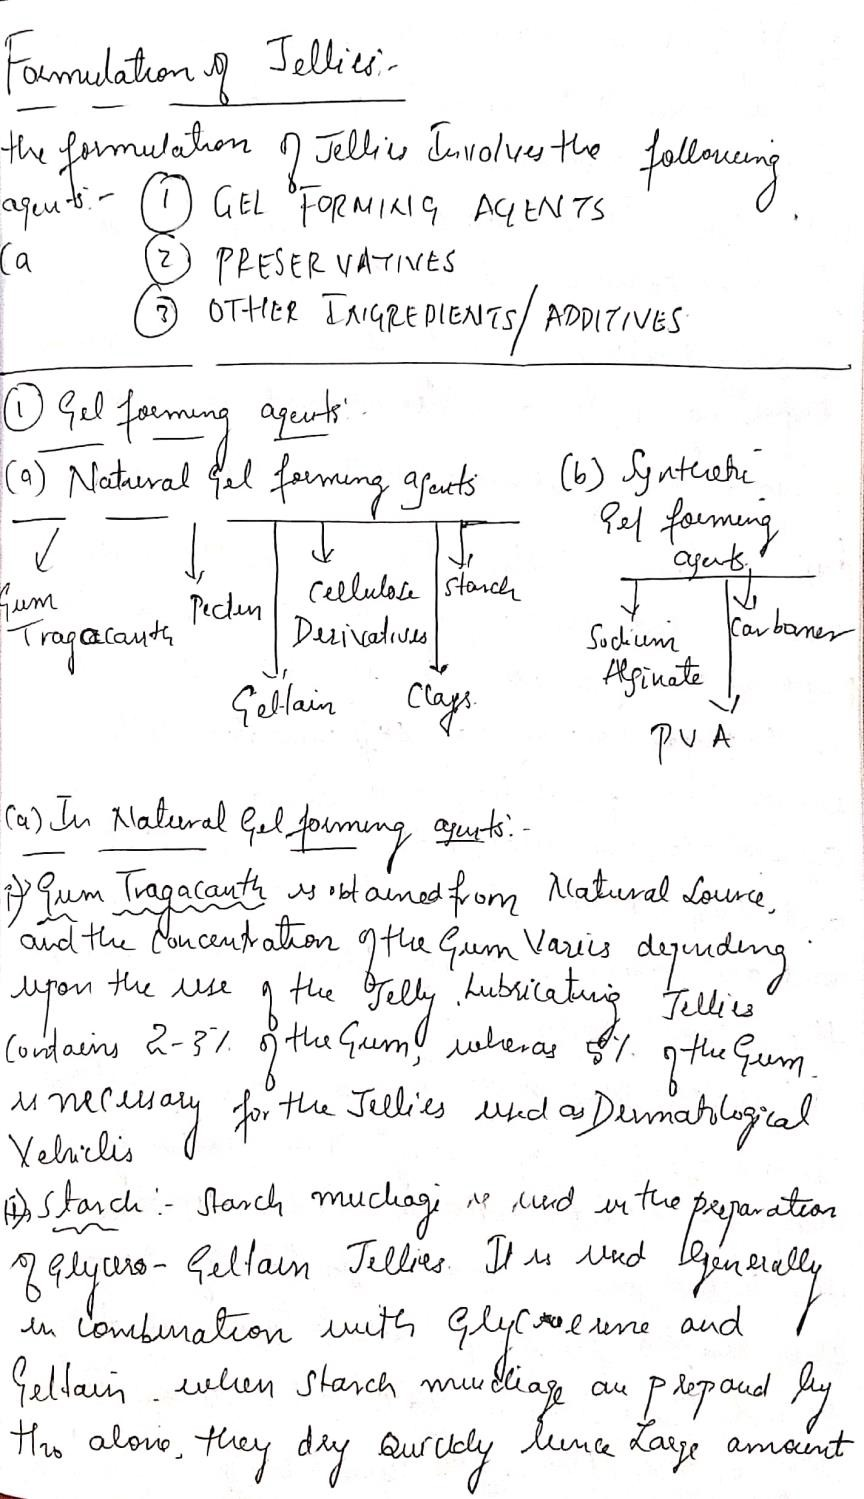 Formulation of Jellies:-
the formulation of Jellies Involves the following
agents:- ① GEL FORMING AGENTS.
(a ② PRESERVATIVES
③ OTHER INGREDIENTS/ADDITIVES
① Gel forming agents:-
(a) Natural Gel forming agents
(b) Synthetic
Gel forming
agents.
Gum
Tragacanth
Pectin
Cellulose
Derivatives
Starch
Geltain
Clays.
Sodium
Alginate
Carbomer
PVA
(a) In Natural Gel forming agents:-
i) Gum Tragacanth is obtained from Natural Source,
and the Concentration of the Gum Varies depending
upon the use of the Jelly. Lubricating Jellies
Contains 2-3% of the Gum, wheras 5% of the Gum
is necessary for the Jellies used as Dermatological
Vehicles
ii) Starch:- Starch mucliage is used in the preparation
of Glycero-Geltain Jellies. It is used generally
in combination with Glycerene and
Geltain. when starch mucliage are prepared by
H20 alone, they dry quickly hence Large amount